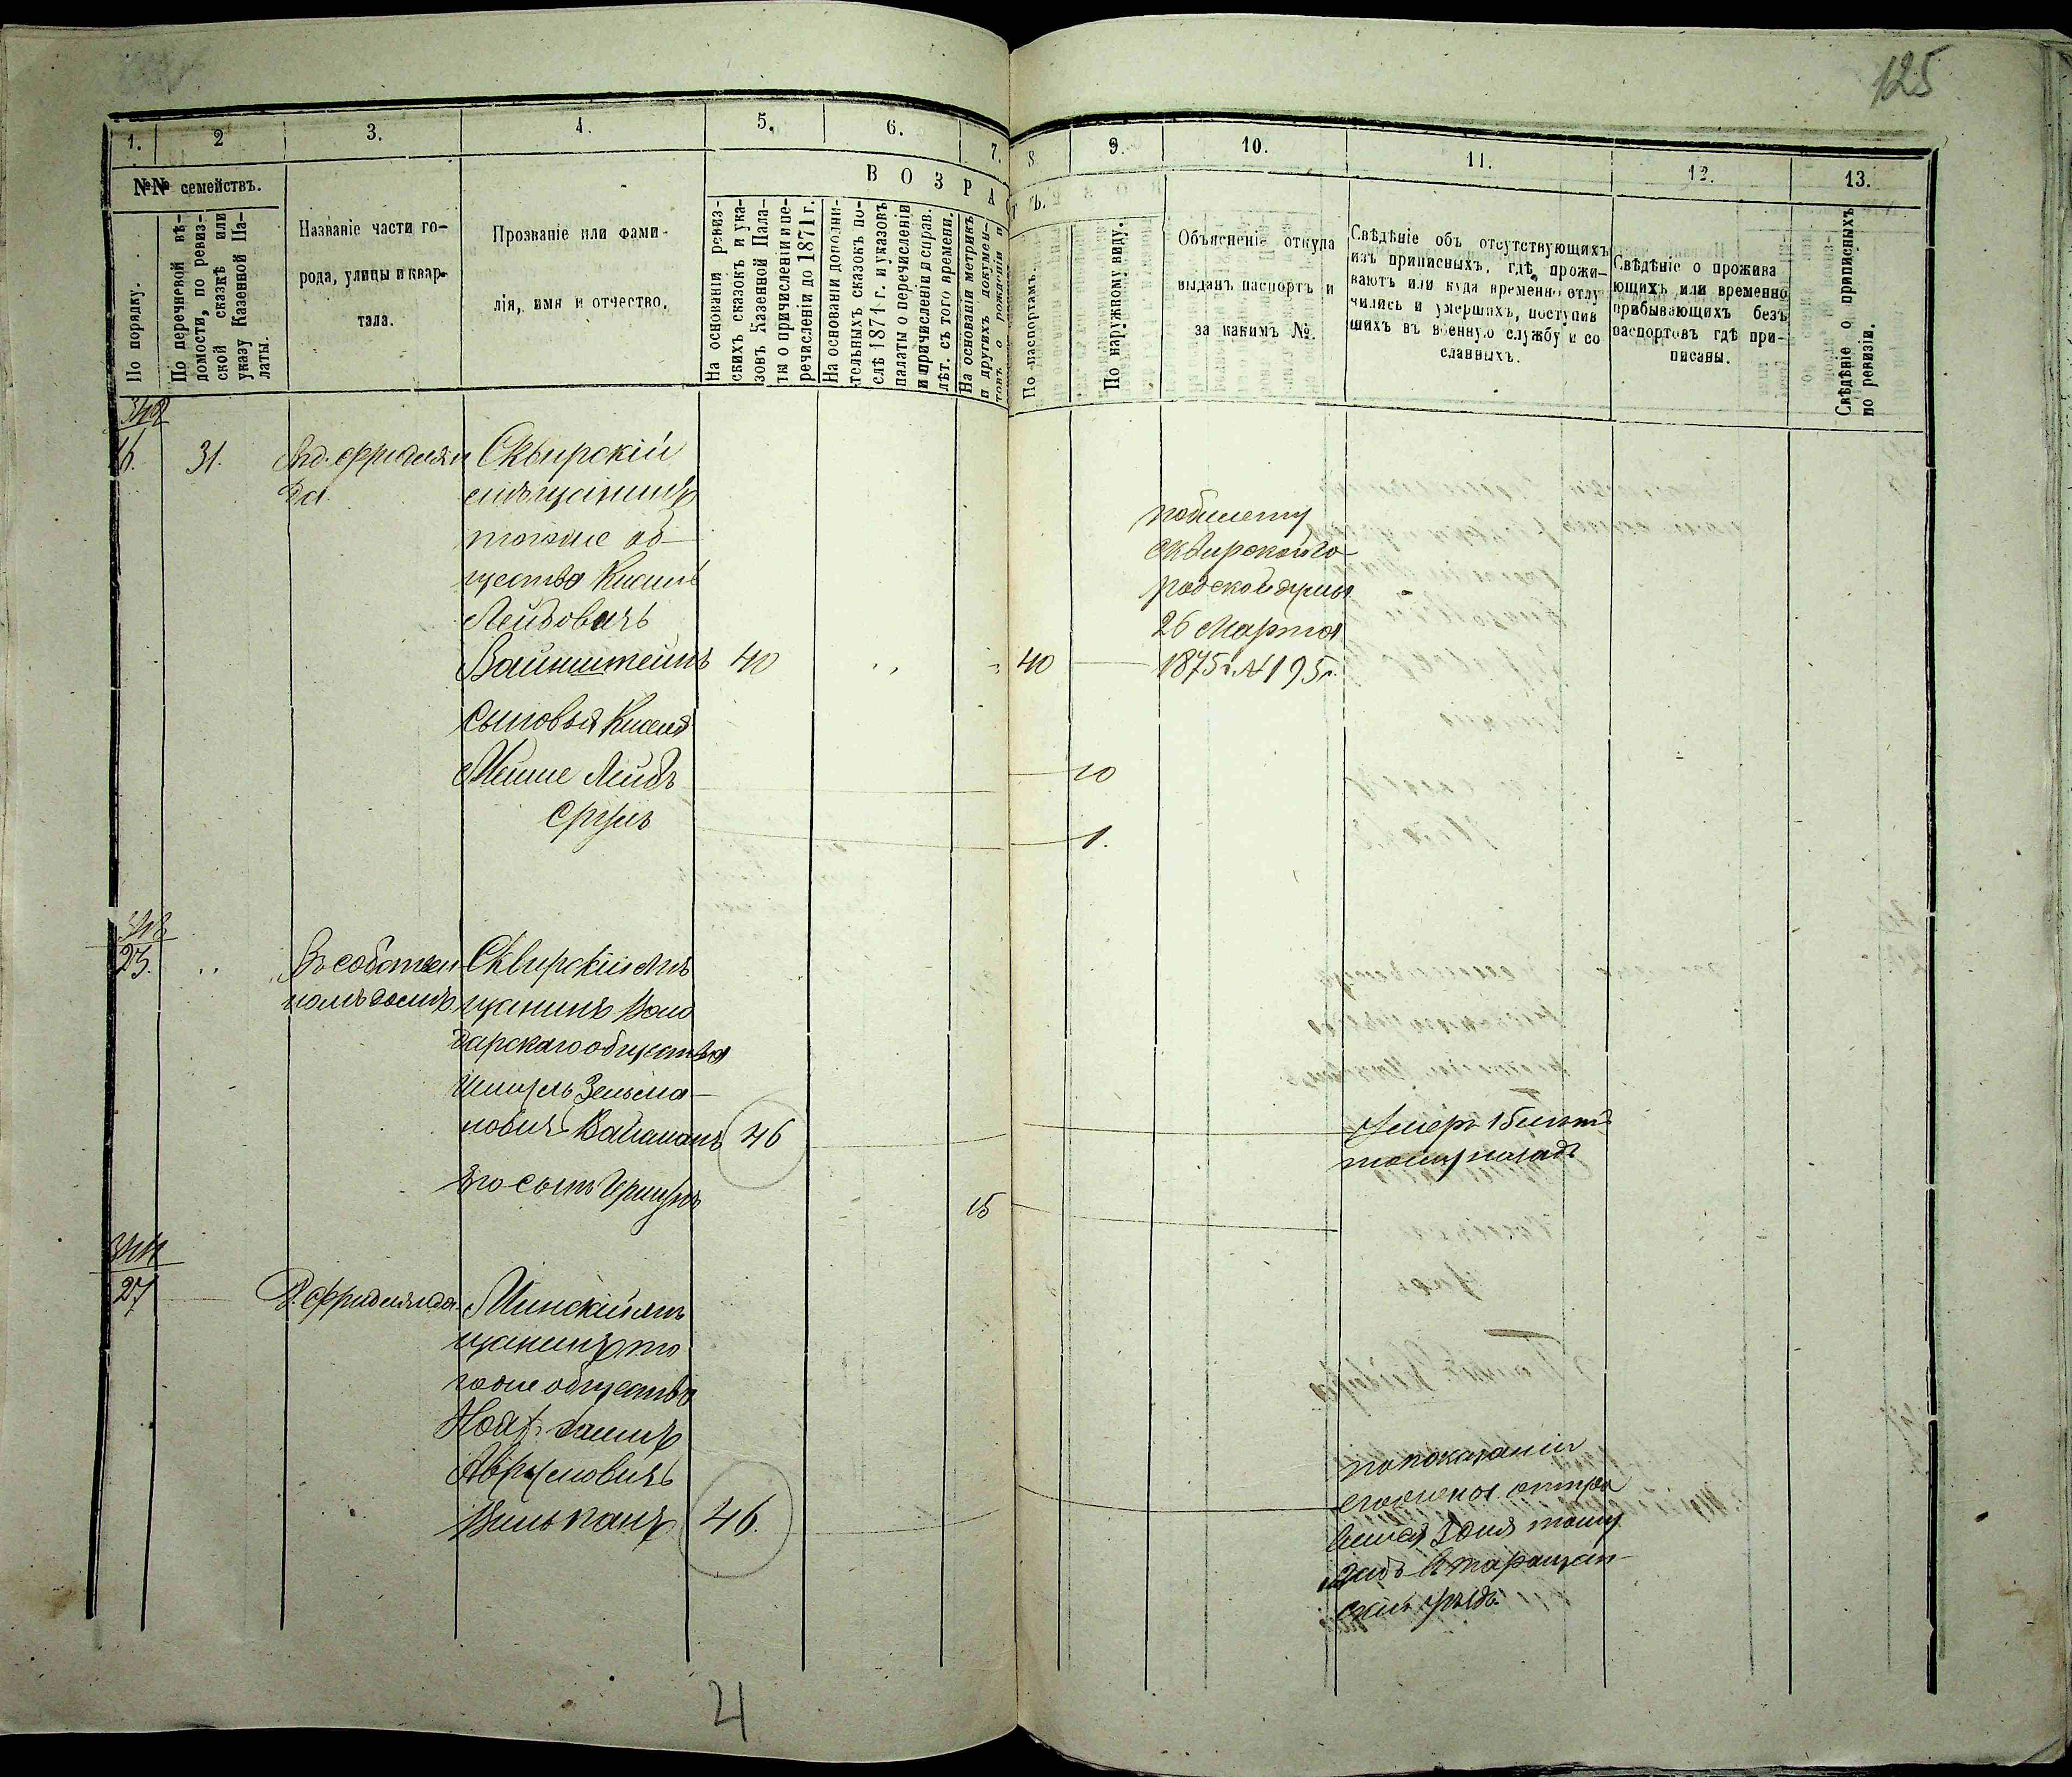 125
1.
2
3.
4.
5.
6.
7.
8.
9.
10.
11.
12.
13.
№№ семействъ.
ВОЗРА
ТЪ.
По порядку.
По перечневой вѣ-
домости, по ревиз-
ской сказкѣ или
указу Казенной Па-
латы.
Названіе части го-
рода, улицы и квар-
тала.
Прозваніе или фами-
лія, имя и отчество.
На основаніи ревиз-
скихъ сказокъ и ука-
зовъ Казенной Пала-
ты о причисленіи и пе-
речисленіи до 1871 г.
На основаніи дополни-
тельныхъ сказокъ по-
слѣ 1871 г. и указовъ
палаты о перечисленіи
и причисленіи и справ.
лѣт. съ того времени.
На основаніи метрикъ
и другихъ докумен-
товъ о рожденіи и
По паспортамъ.
По наружному виду.
Объясненіе откуда
выданъ паспортъ и
за какимъ №.
Свѣдѣніе объ отсутствующихъ
изъ приписныхъ, гдѣ прожи-
ваютъ или куда временно отлу
чились и умершихъ, поступив
шихъ въ военную службу и со
сланныхъ.
Свѣдѣніе о прожива
ющихъ или временно
прибывающихъ безъ
паспортовъ гдѣ при-
писаны.
Свѣдѣніе о приписныхъ
по ревизіи.
342
16.
31.
Сквирскій
мѣщанинъ
тогоже об-
щества Кисиль
Лейбовичъ
Вайнштейнъ 40 40
побилету
Сквирской го-
родской думы
26 Марта
1875 г. № 195.
Сыновья Киселя
Мошие Лейбъ 10
Срулъ 1.
343
23.
Въ собствен
номъ домѣ
Сквирскій мѣ
щанинъ Воло
дарскаго общества
Шмуль Зельма-
новичъ Вайсманъ 46
Умеръ 15 лѣтъ
тому назадъ
Его сынъ Ершулъ 15
344
27
Минскій мѣ
щанинъ то
гоже общества
Аврумовичъ
46.
по показанію
его жены отпра
вился 3 дня тому
назадъ въ Таращан-
скій уѣздъ.
4